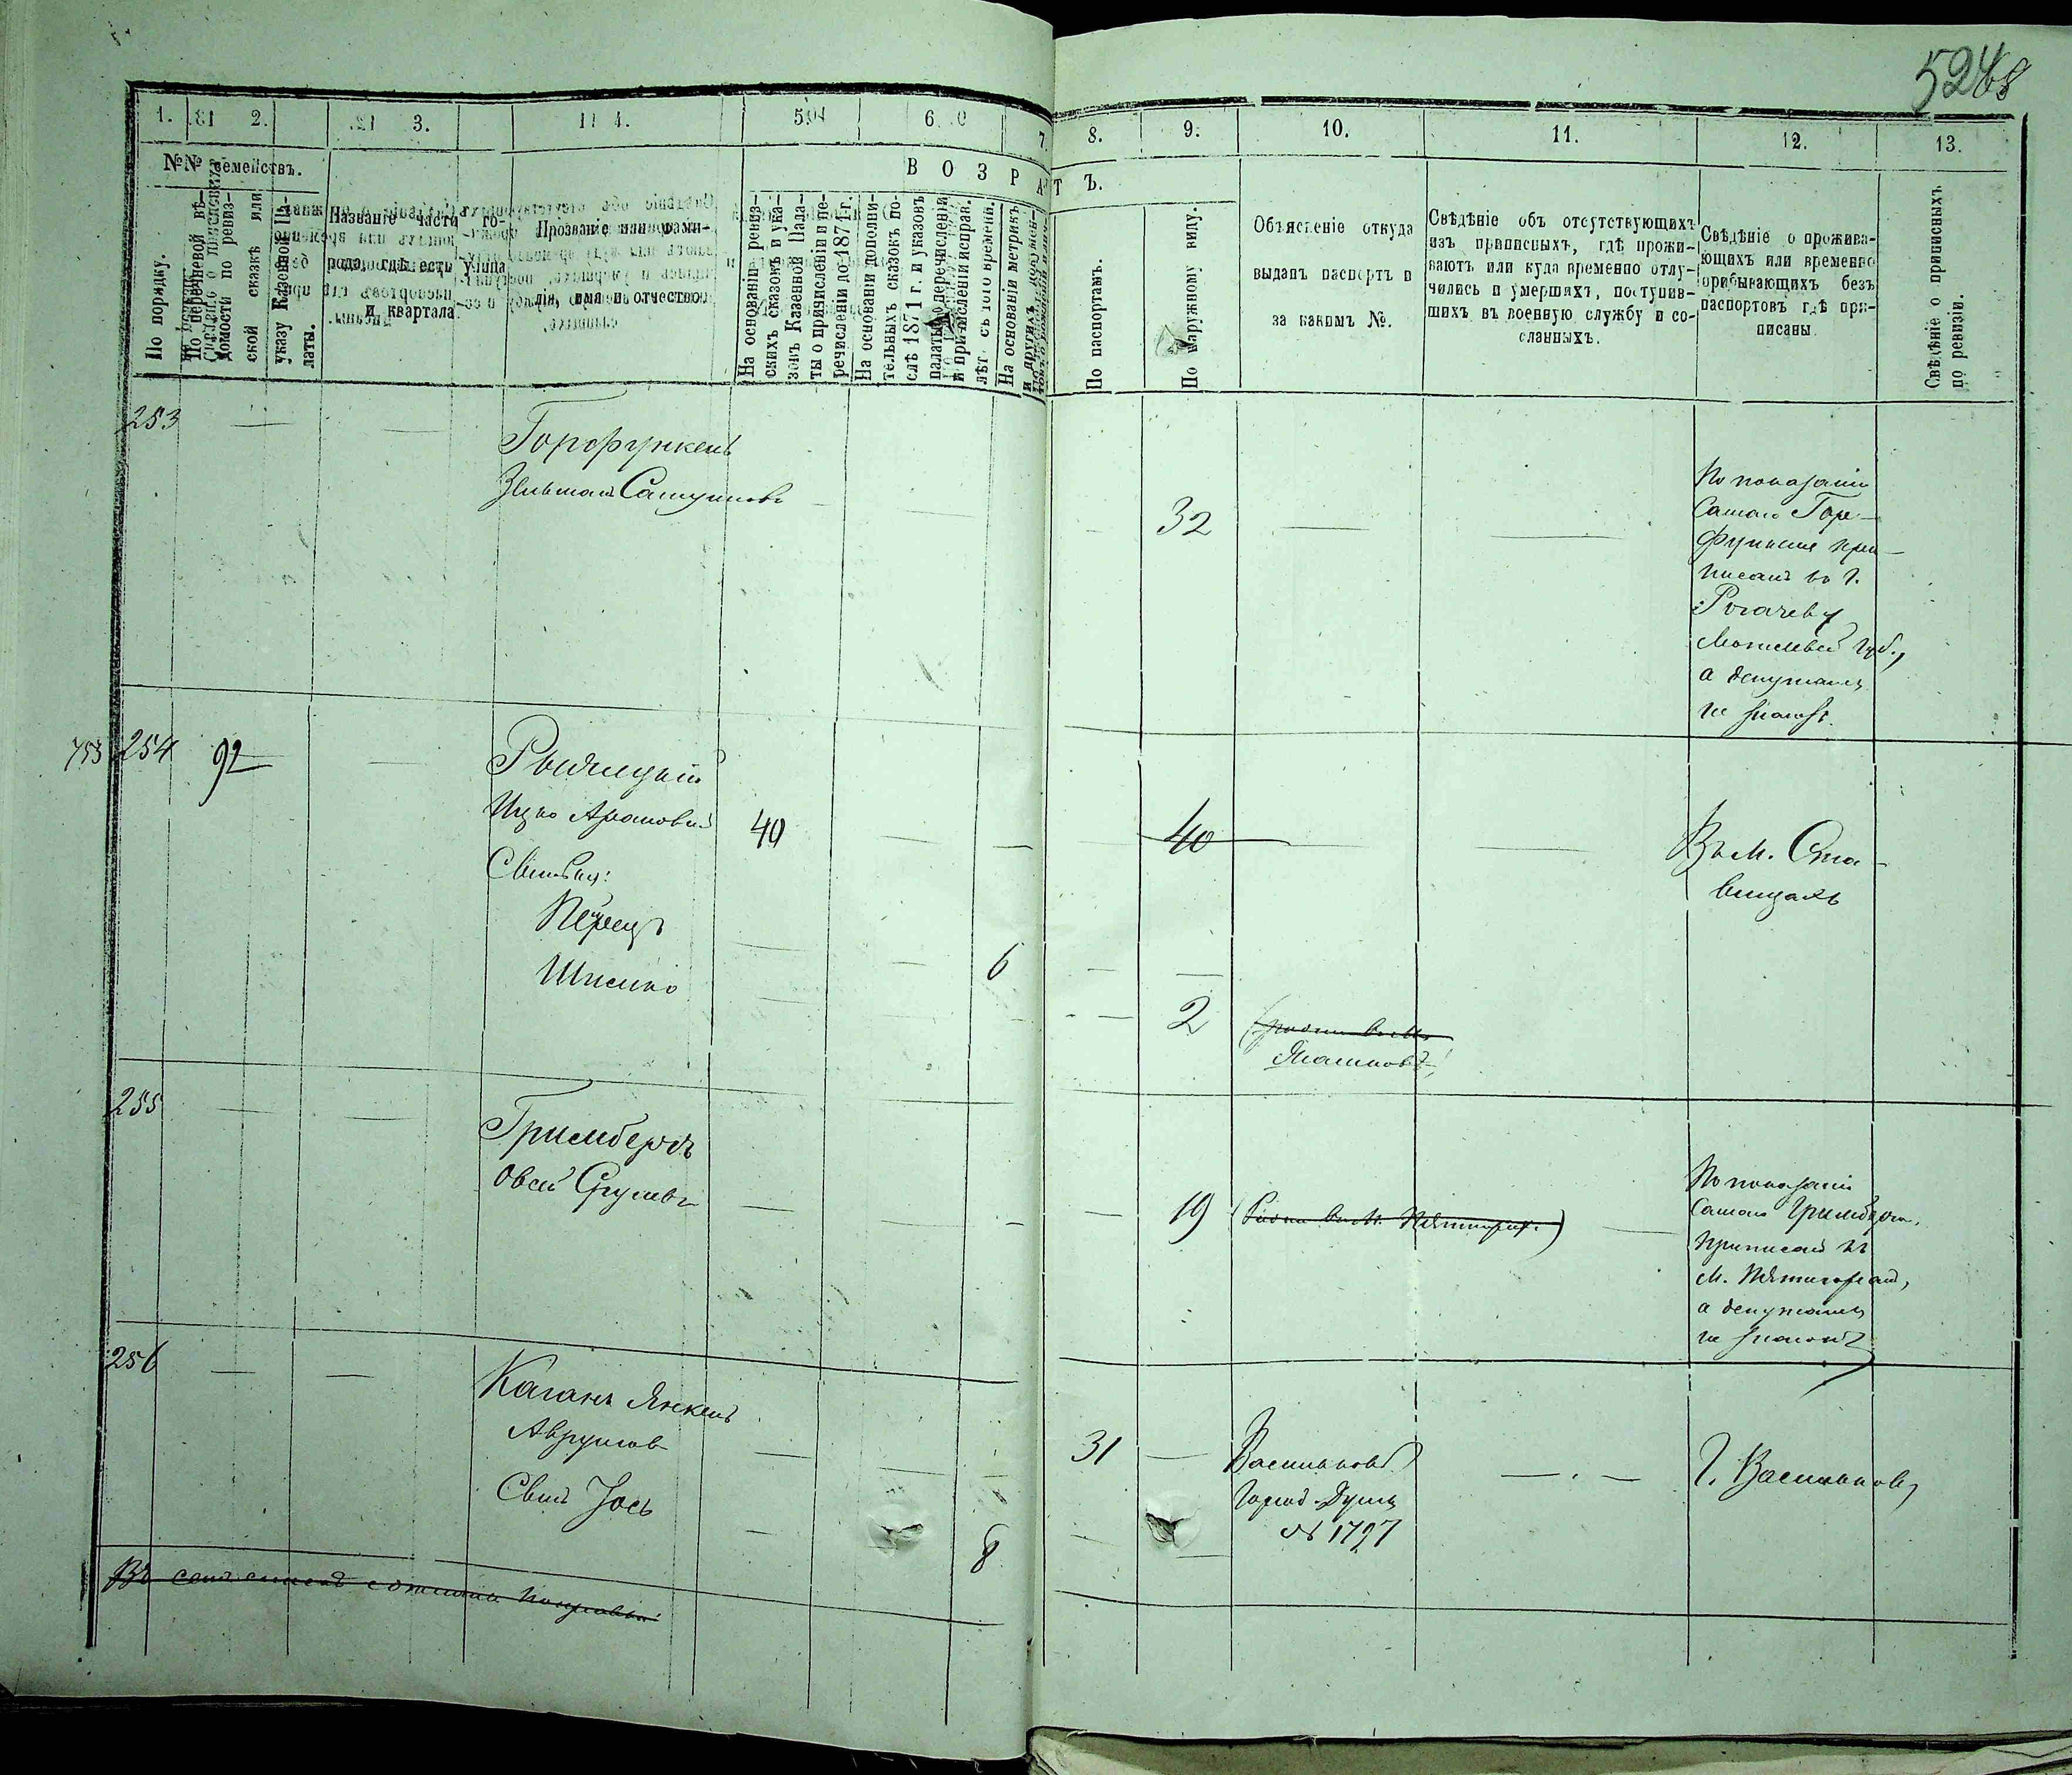 5248
1. 2. 3. 4. 5. 6. 7. 8. 9. 10. 11. 12. 13.
№№ семействъ.
По порядку.
По перечневой вѣ-
домости по ревиз-
ской сказкѣ или
указу Казенной Па-
латы.
Названіе части го-
рода, гдѣ есть улица
и кварталъ.
Прозваніе или фами-
лія, имя и отчество.
ВОЗРАСТЪ.
На основаніи ревиз-
скихъ сказокъ и ука-
зовъ Казенной Пала-
ты о причисленіи и пе-
речисленіи до 1871 г.
На основаніи дополни-
тельныхъ сказокъ по-
слѣ 1871 г. и указовъ
палаты о перечисленіи
и причисленіи исправ.
лѣт. съ того времени.
На основаніи метрикъ
и другихъ
По паспортамъ.
По наружному виду.
Объясненіе откуда
выданъ паспортъ и
за какимъ №.
Свѣдѣніе объ отсутствующихъ
изъ приписныхъ, гдѣ прожи-
ваютъ или куда временно отлу-
чились и умершихъ, поступив-
шихъ въ военную службу и со-
сланныхъ.
Свѣдѣніе о прожива-
ющихъ или временно
прибывающихъ безъ
паспортовъ гдѣ при-
писаны.
Свѣдѣніе о приписныхъ
по ревизіи.
253
Горфункель
Зельманъ
32
По показанію
самаго Гор-
функеля при-
писанъ въ г.
Рогачеву
Могилевской губ.,
а
не
753 254 92
Ицко Ароновъ 40 40 Въ м. Ста-
вищахъ
Сыновья:
Перецъ 6
Шмелко 2
255
Гримбергъ
Овсей Сруловъ
19
По показанію
самаго Гримберга,
приписанъ къ
м. Пятигорамъ,
а
не
256
Каганъ Янкель
Аврумов
31 Васильковс
Город. Думы
№ 1797
Г. Васильковъ
Сынъ Іось 8